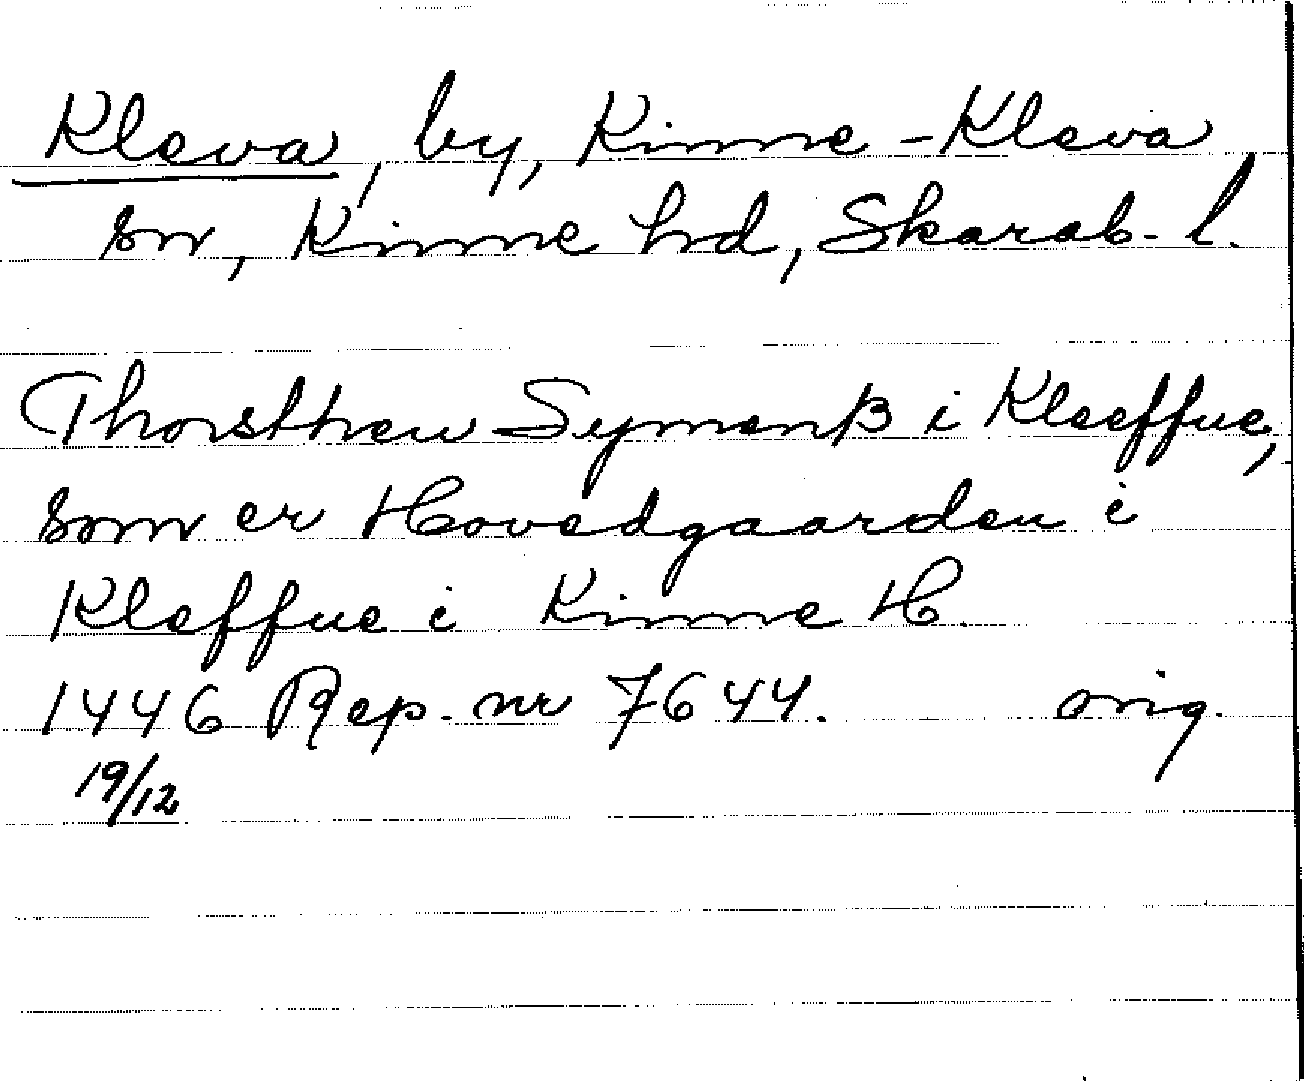 Kleva, by, Kinne-Kleva
sn, Kinne hd, Skarab. l.
Thorsthen Symenß i Kleeffue,
som er Hovedgaarden i
Kleffue i Kinne H.
1446 Rep. nr 7644. orig.
19/12